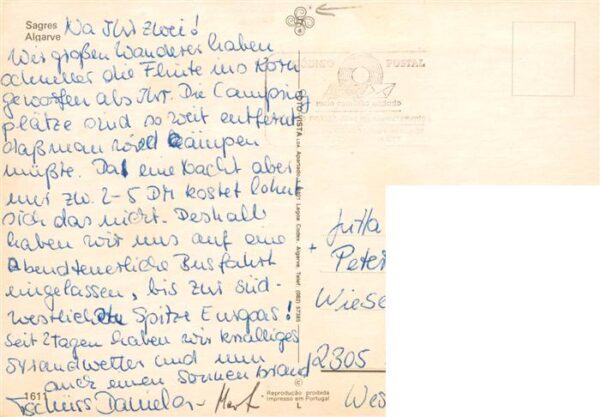 Sagres
Algarve
Na Ihr zwei!
Wir großen Wanderer haben
schneller die Flinte ins Korn
geworfen als Ihr. Die Camping
plätze sind so weit entfernt
daß man wild campen
müßte. Da eine Nacht aber
nur zw. 2-5 DM kostet lohnt
sich das nicht. Deshalb
haben wir uns auf eine
Abendteuerliche Busfahrt
eingelassen, bis zur süd-
westlichsten Spitze Europas!
Seit 2 Tagen haben wir knalliges
Strandwetter und nun
auch einen Sonnenbrand
Tschüss Daniela
1611
CÓDIGO POSTAL
meio caminho andado
FOTO-VISTA
Lagos Codex. Algarve. Telef. (082)
© Reprodução proibida
Impresso em Portugal
L
Jutta
+ Peter
Wiese
2305
Wes